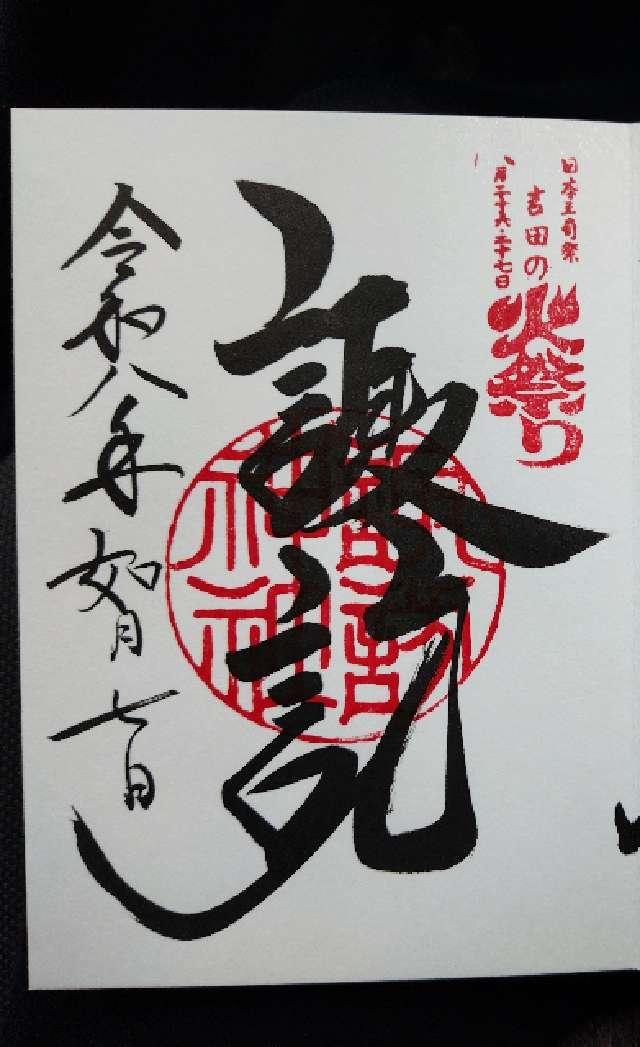 日本三奇祭
吉田の
火祭り
八月二十六・二十七日
諏訪
諏訪神社
令和八年如月七日